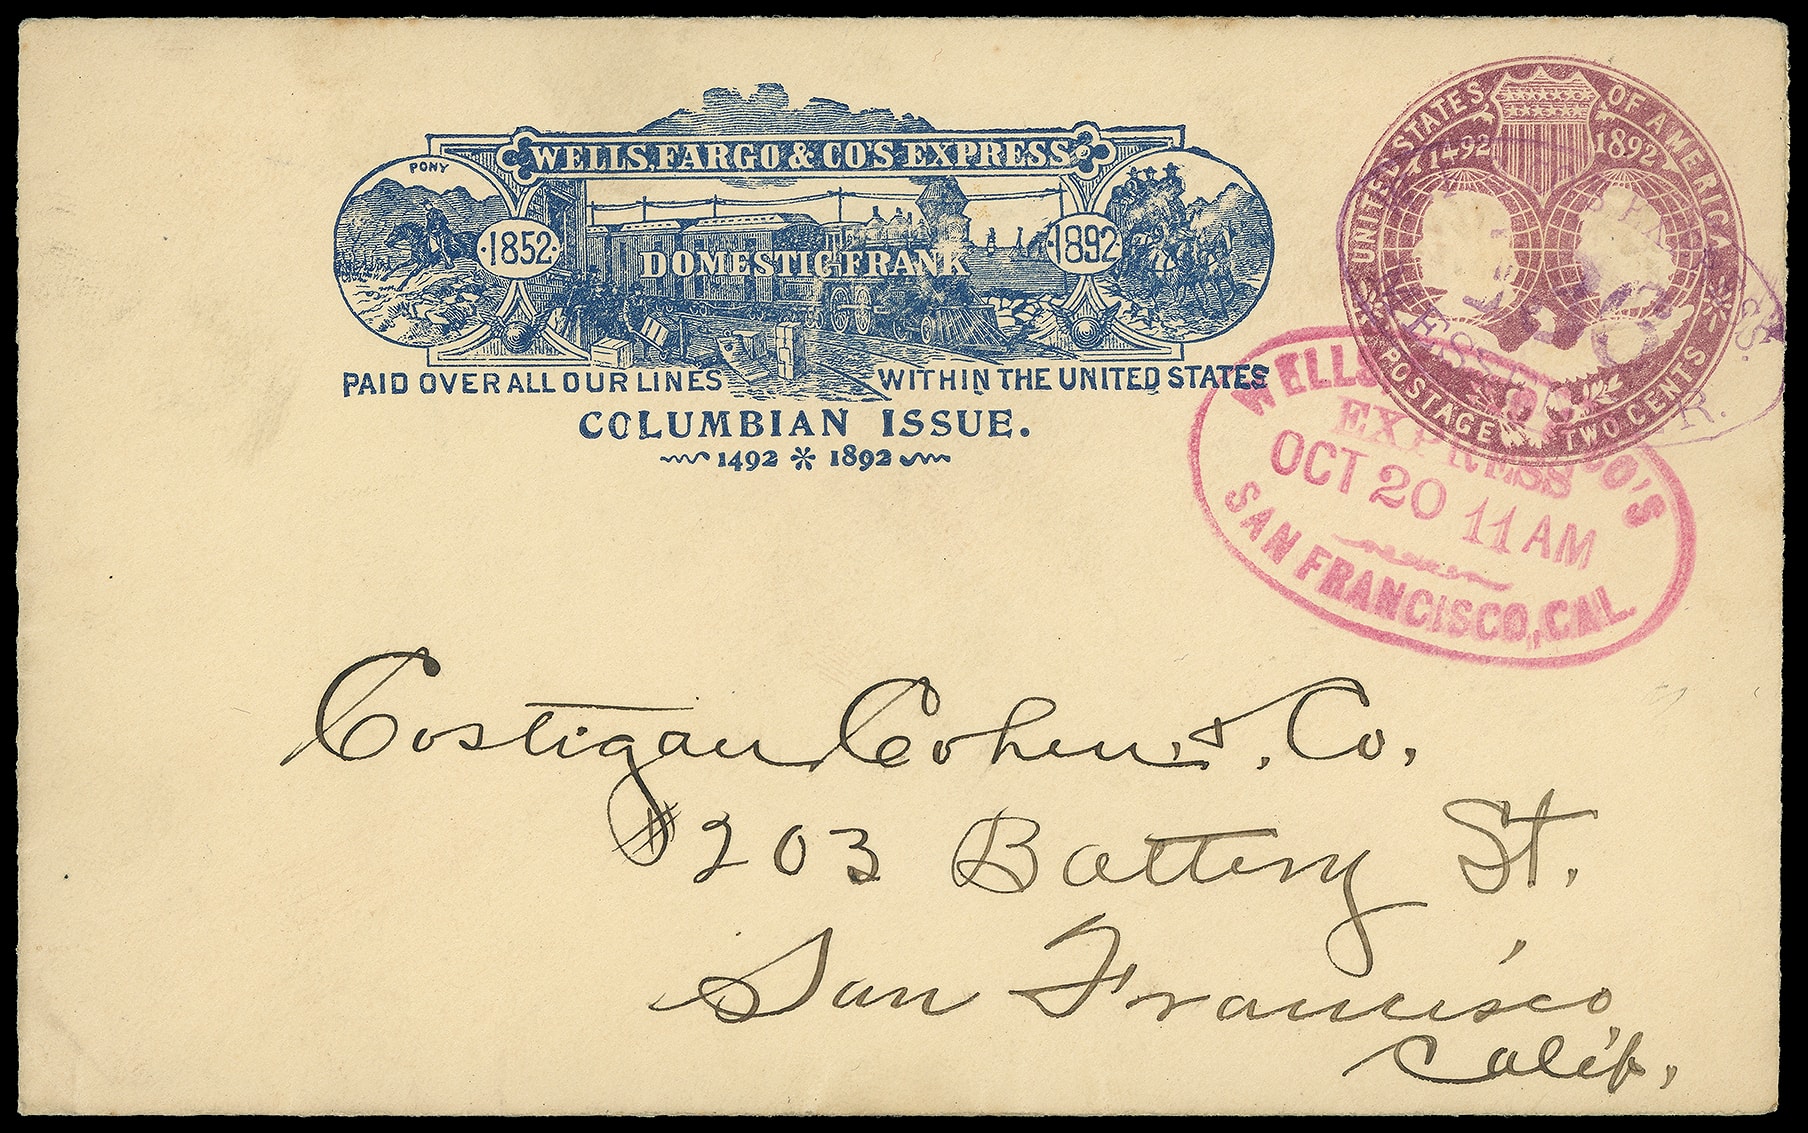 WELLS, FARGO & CO'S EXPRESS
PONY
1852
1892
DOMESTIC FRANK
PAID OVER ALL OUR LINES WITHIN THE UNITED STATES
COLUMBIAN ISSUE.
1492 1892
UNITED STATES OF AMERICA
1492 1892
POSTAGE TWO CENTS
WELLS CO'S
EXPRESS
OCT 20 11 AM
SAN FRANCISCO, CAL.
Costigan Cohen & Co.
#203 Battery St.
San Francisco
Calif.